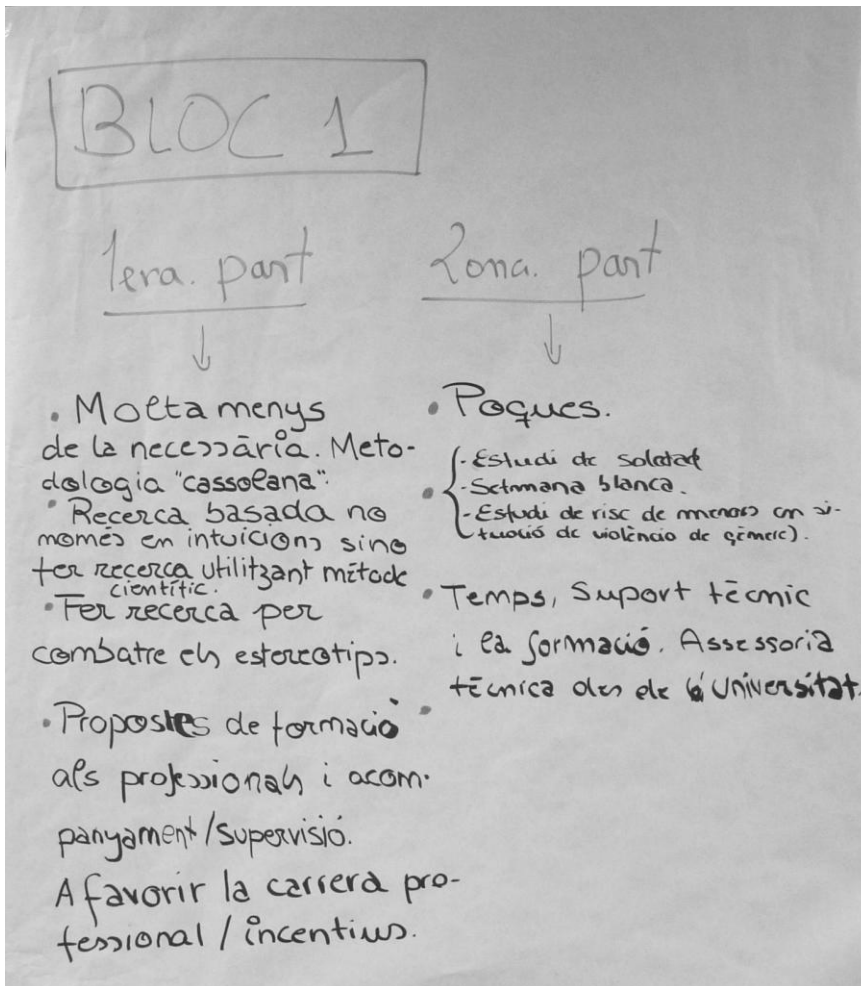 BLOC 1
1era. part
• Molta menys
de la necessària. Meto-
dologia "cassolana".
• Recerca basada no
només en intuicions sino
fer recerca utilitzant mètode
científic.
• Fer recerca per
combatre els estereotips.
• Propostes de formació
als professionals i acom-
panyament/supervisió.
Afavorir la carrera pro-
fessional / incentius.
2ona. part
• Poques.
- Estudi de soletat
- Setmana blanca.
- Estudi de risc de menors en si-
tuació de violència de gènere).
• Temps, Suport tècnic
i la formació. Assessoria
tècnica des de la Universitat.